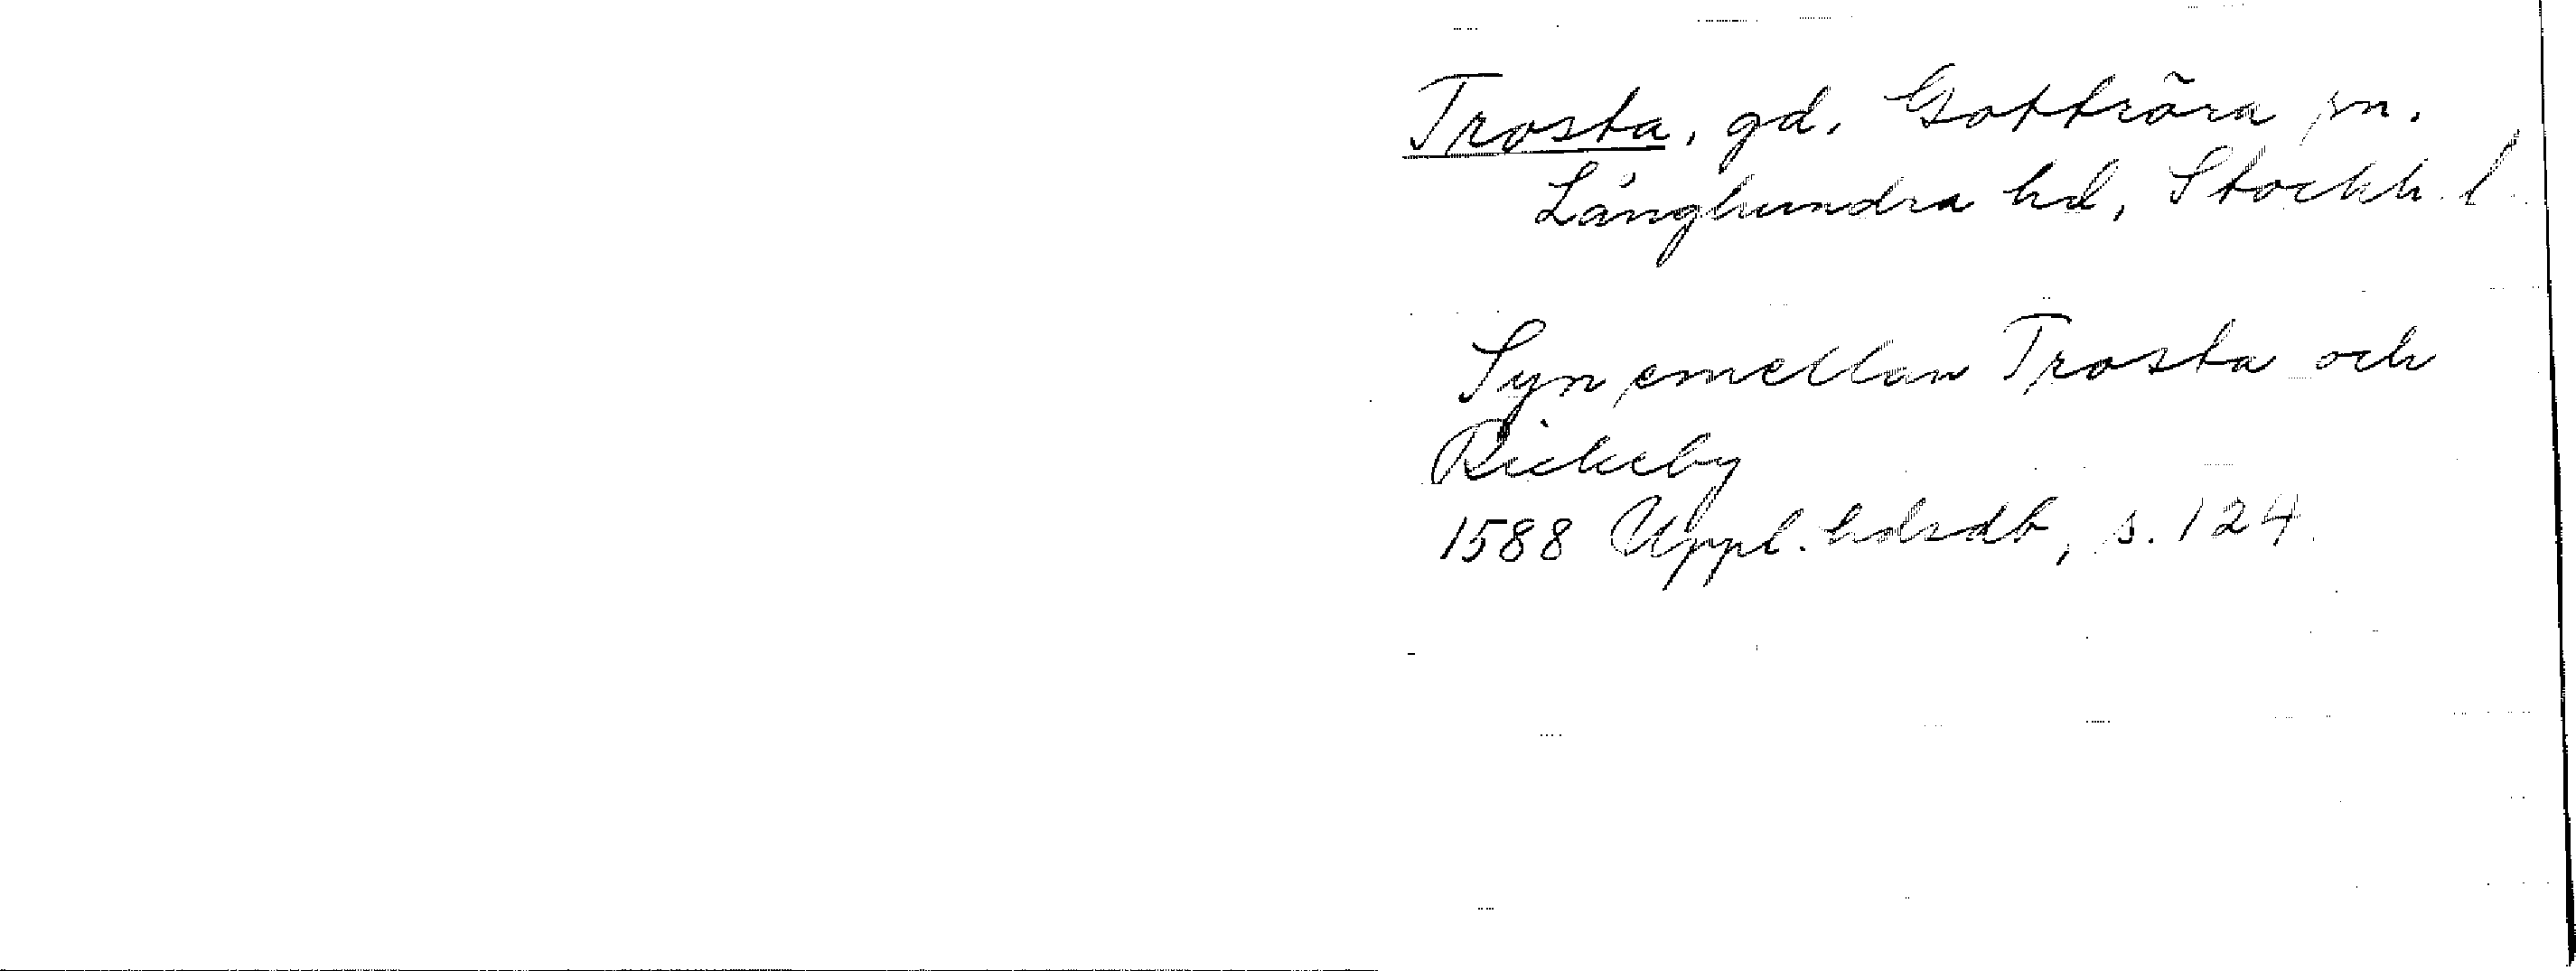 Trosta, gd, Gottröra sn.
Långhundra hd, Stockh. l.
Syn emellan Trosta och
Rickeby
1588 Uppl. hdsdb, s. 124.